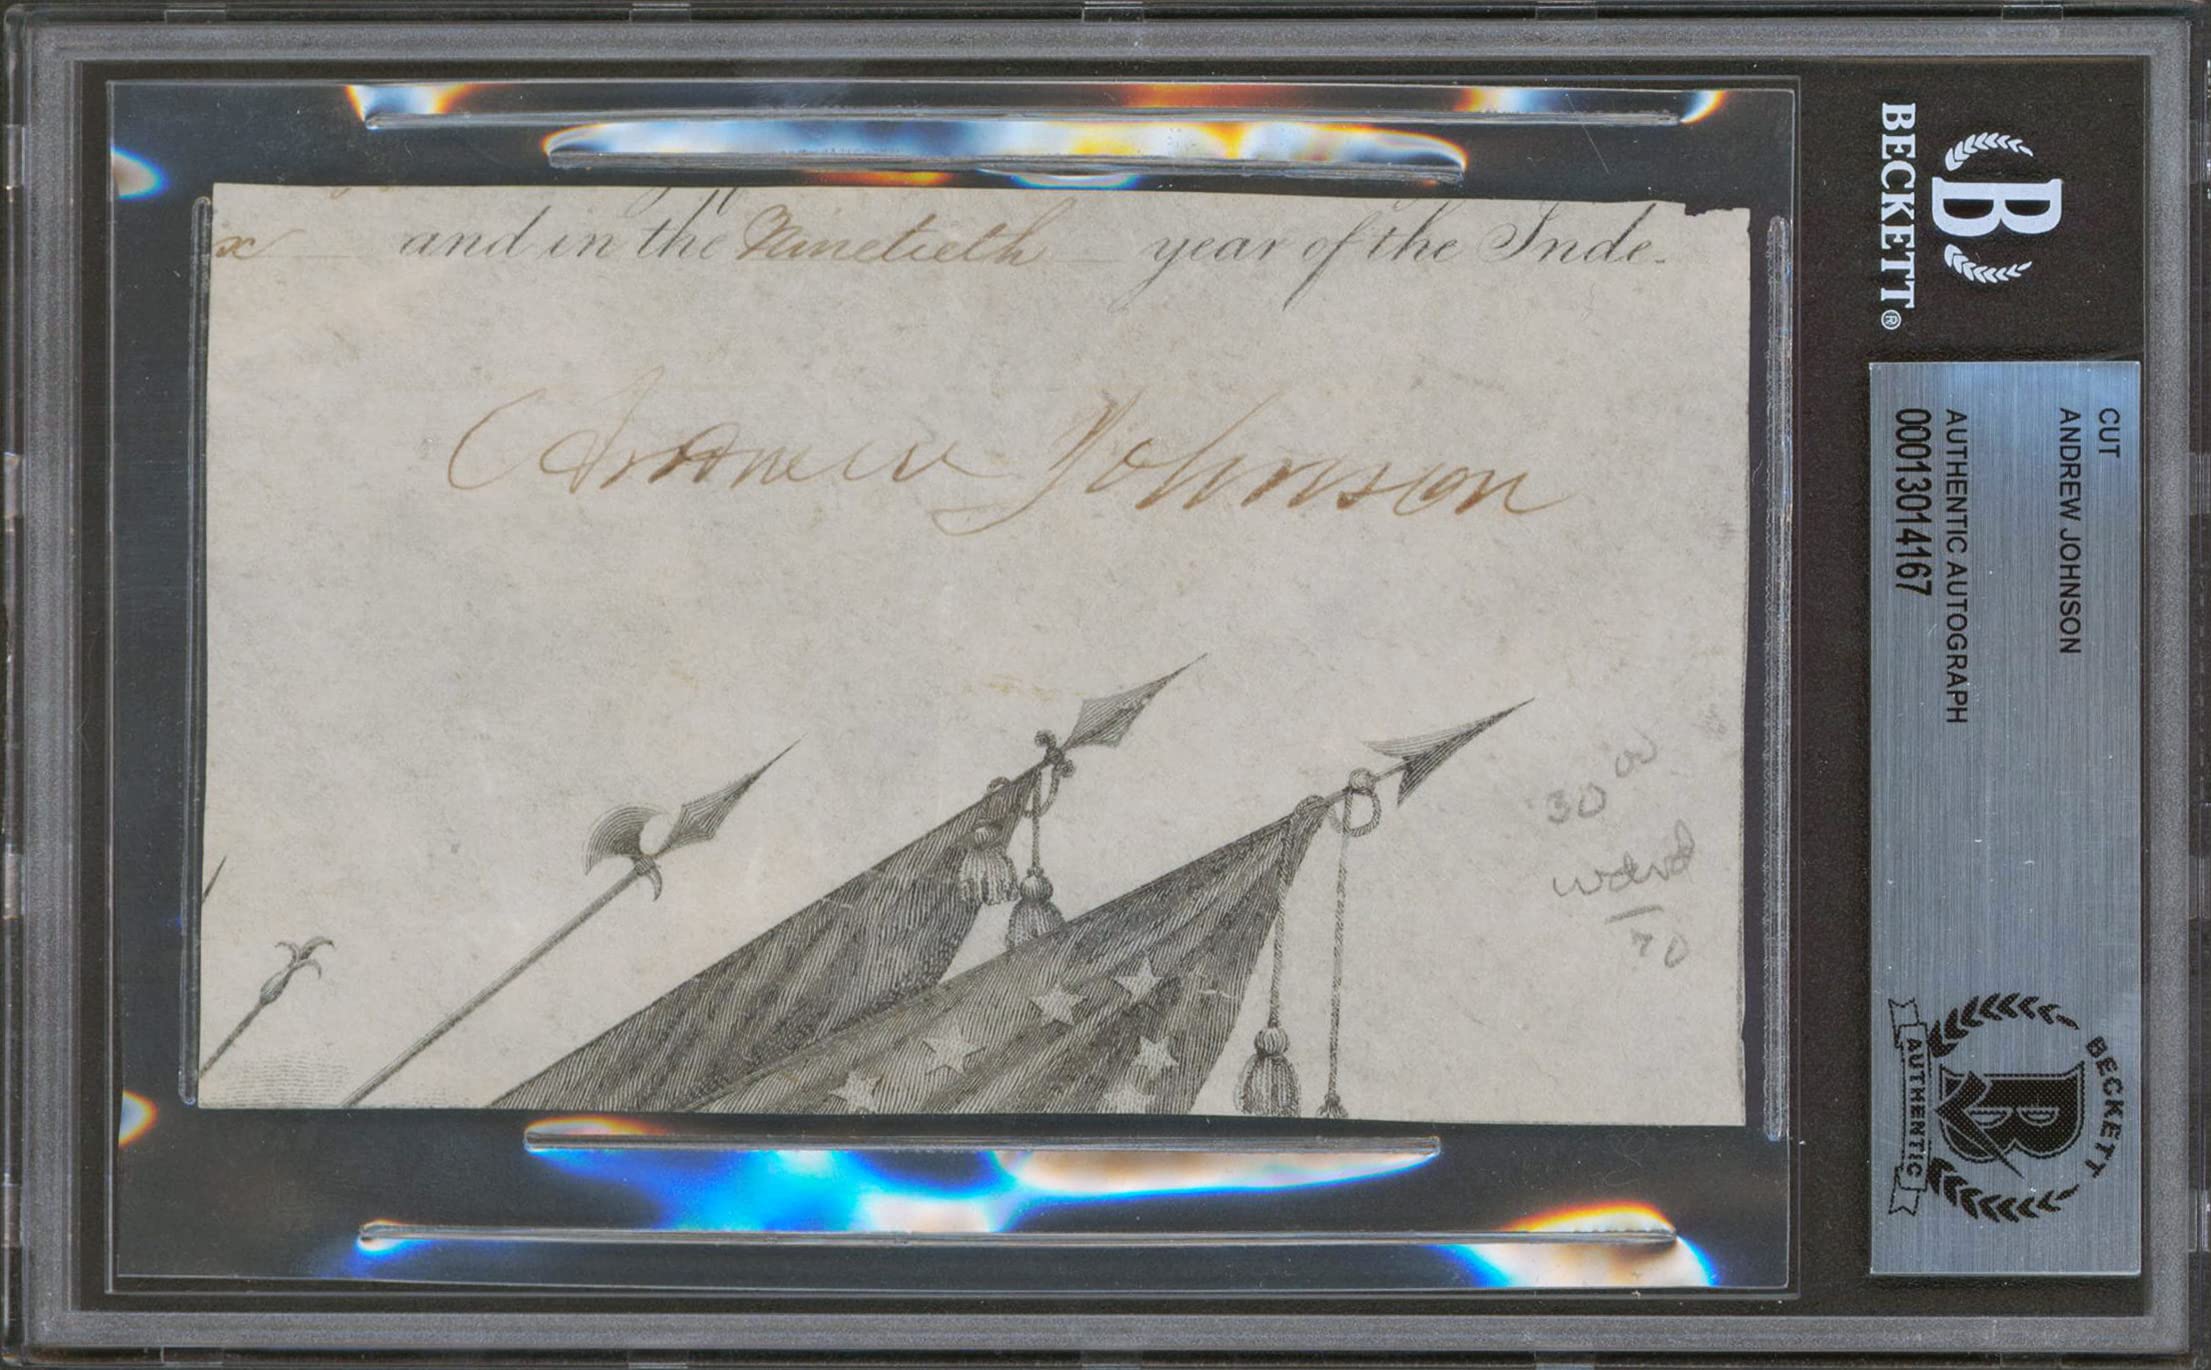 x and in the Ninetieth year of the Inde-
Andrew Johnson
30 00
70
BECKETT®
B
CUT
ANDREW JOHNSON
AUTHENTIC AUTOGRAPH
00013014167
BECKETT
B
AUTHENTIC